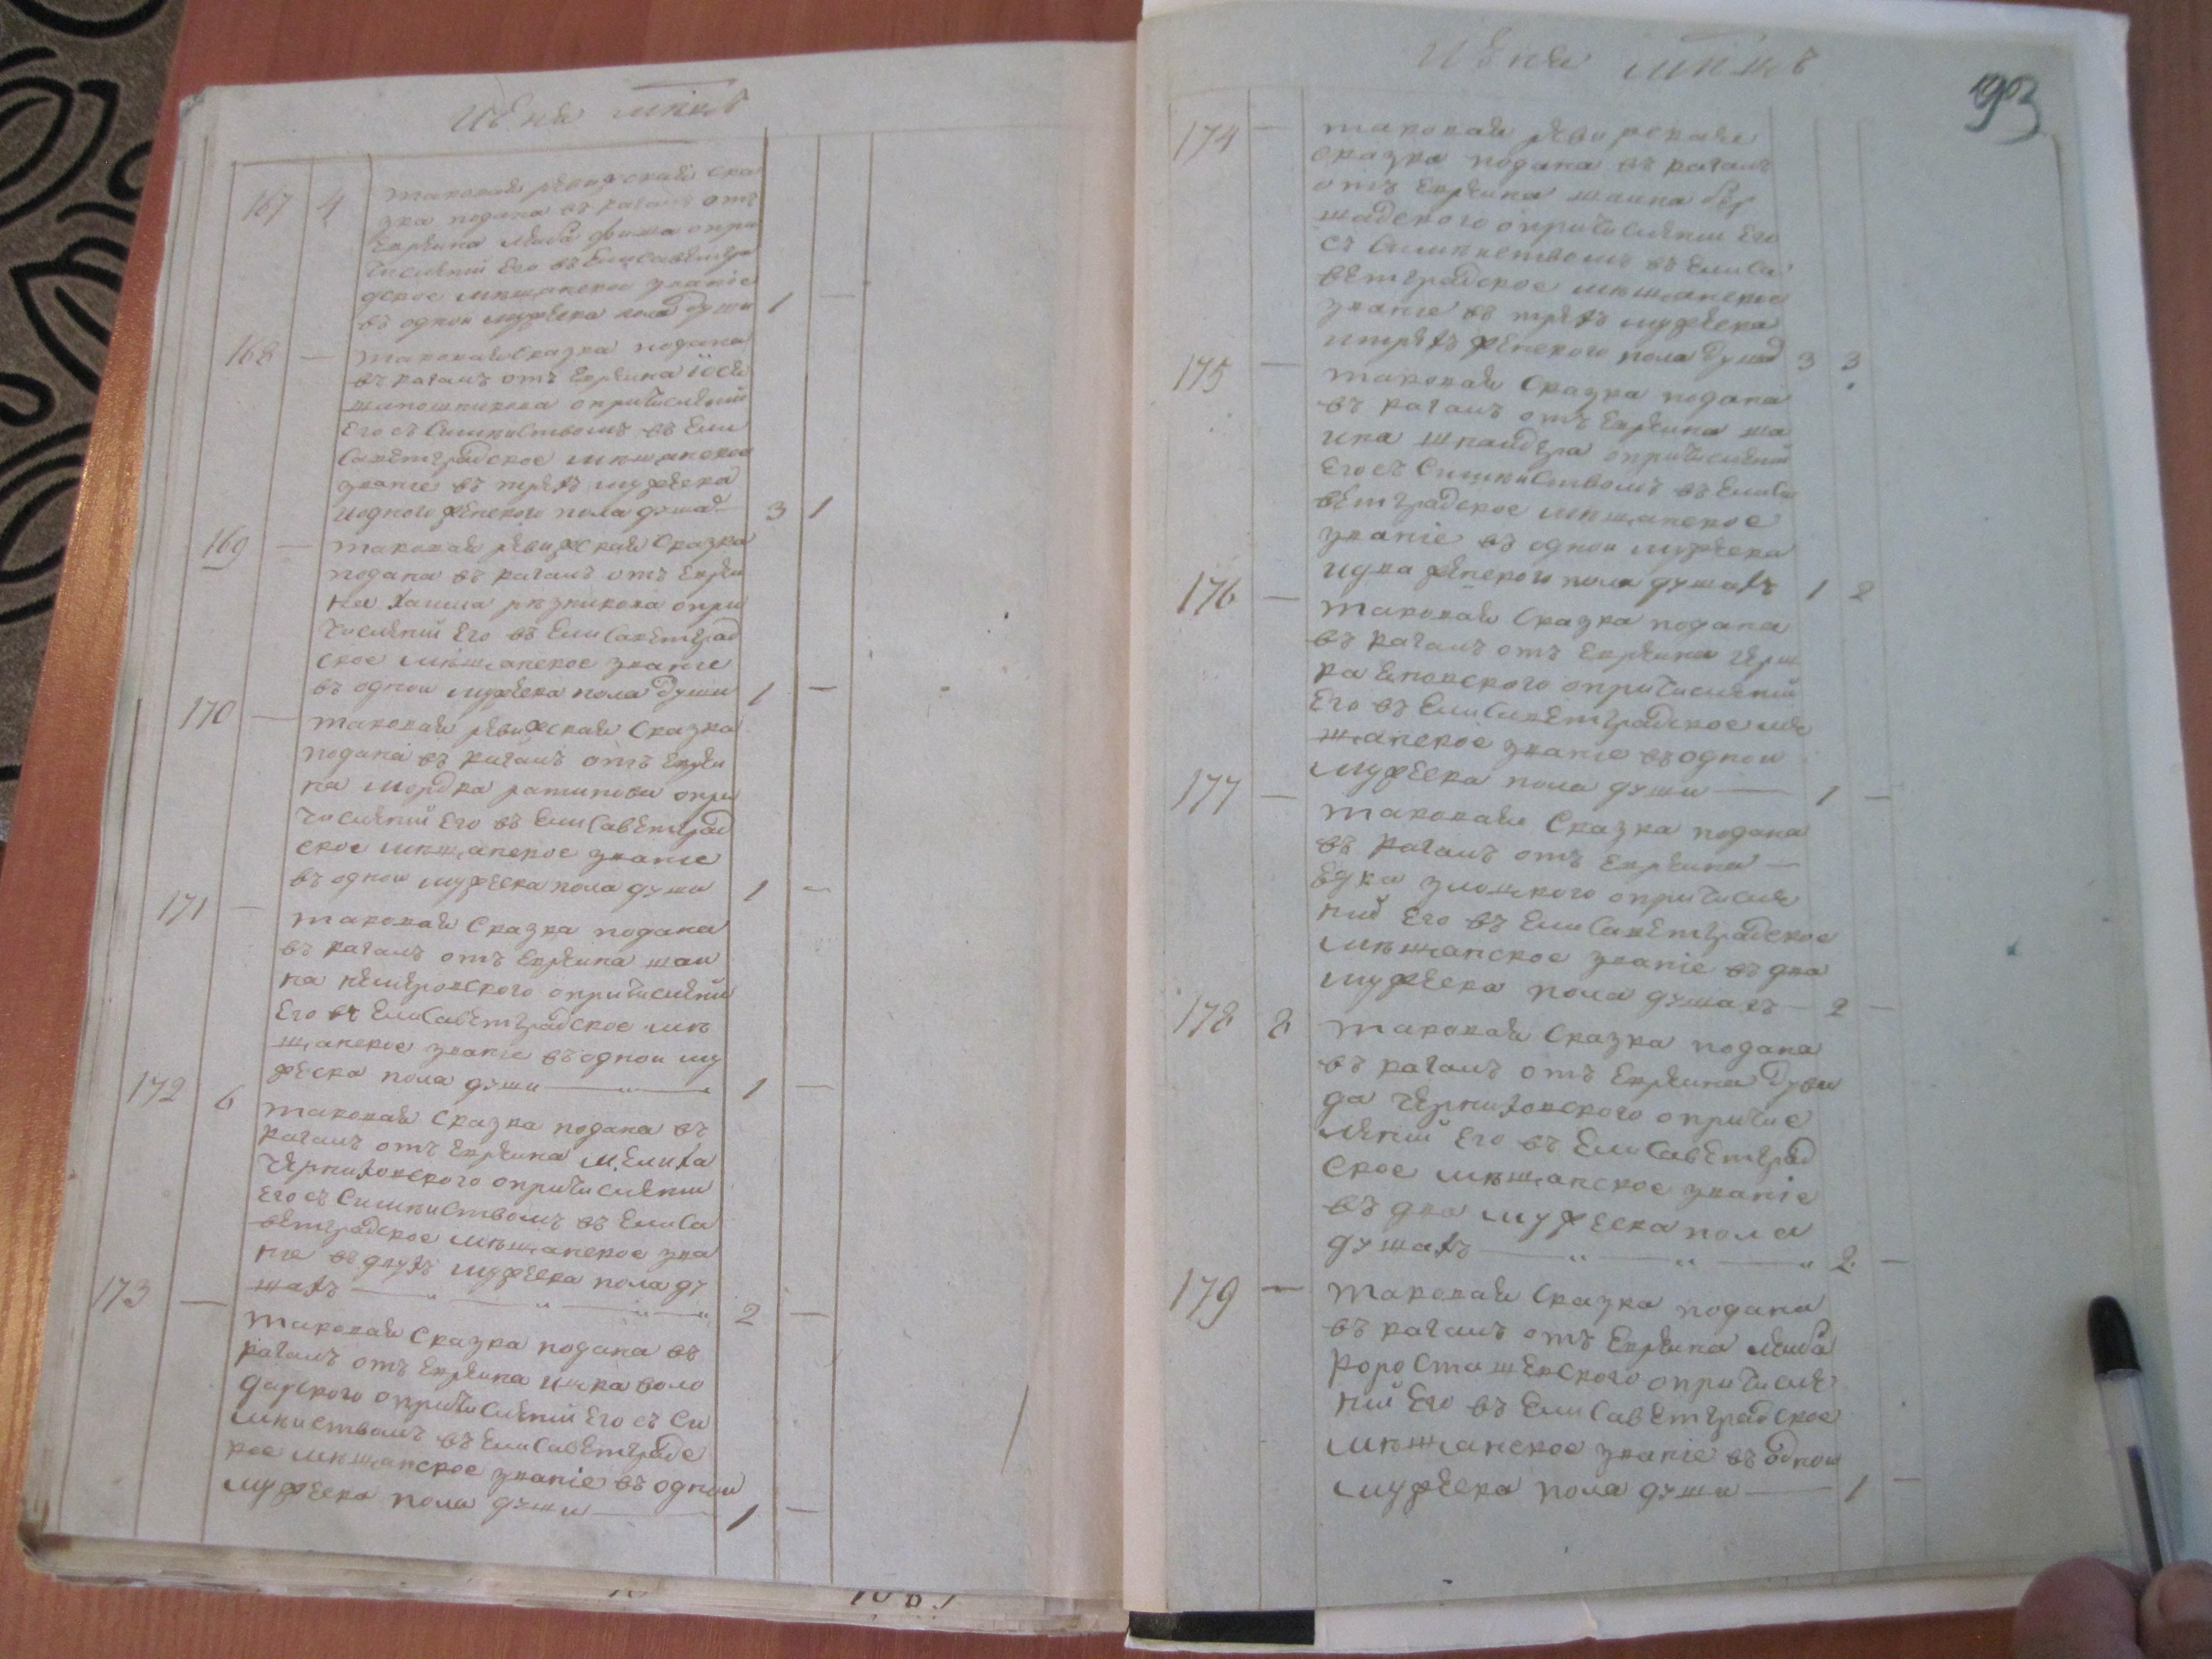 Июня
167 4 таковая ревижская ска
зка подана въ кагалъ отъ
Евреина Лейба Фиша о при
числении Его въ Елисаветгра
дское мещанское звание
въ одной мужеска пола души 1 —
168 — таковая сказка подана
въ кагалъ отъ Евреина Іося
Шапошникова о причислений
Его съ Симействомъ въ Ели
саветградское мещанское
звание въ трехъ мужеска
и одного женского пола душах 3 1
169 — таковая ревижская Сказка
подана въ кагалъ отъ Евреи
на Хаима резникова о при
числений Его въ Елисаветград
ское мещанское звание
въ одной мужеска пола души 1 —
170 — таковая ревижская Сказка
подана въ кагалъ отъ Евреи
на Мордка о при
числений Его въ Елисаветград
ское мещанское звание
въ одной мужеска пола души 1 —
171 — таковая Сказка подана
въ кагалъ отъ Евреина Шаи
на немировского о причислений
Его въ Елисаветградское ме
щанское звание въ одной му
жеска пола души 1 —
172 6 таковая Сказка подана въ
кагалъ отъ Евреина Мелиха
Черниховского о причислении
Его съ Симействомъ въ Елиса
ветградское мещанское зва
ние въ двухъ мужеска пола ду
шахъ 2 —
173 — таковая Сказка подана въ
кагалъ отъ Евреина Ицка воло
дарского о причислений Его съ Си
мействомъ въ Елисаветградс
кое мещанское званіе въ одной
мужеска пола души 1 —
Июня
193
174 — таковая ревижская
сказка подана въ кагалъ
отъ Евреина Шаина бер
шадского о причислении Его
съ Симействомъ въ Елиса
ветградское мещанское
звание въ трехъ мужеска
и трехъ женского пола душах 3 3
175 — таковая Сказка подана
въ кагалъ отъ Евреина Ша
ина Шнайдера о причислений
Его съ Симействомъ въ Елиса
ветградское мещанское
званіе въ одной мужеска
и два женского пола душахъ 1 2
176 — таковая Сказка подана
въ кагалъ отъ Евреина Герш
ка о причислений
Его въ Елисаветградское ме
щанское звание въ одной
мужеска пола души 1 —
177 — таковая Сказка подана
въ кагалъ отъ Евреина —
о причисле
ний Его въ Елисаветградское
мещанское званіе въ два
мужеска пола душахъ — 2 —
178 8 таковая Сказка подана
въ кагалъ отъ Евреина Дуви
да Черниховского о причис
лений Его въ Елисаветград
ское мещанское званіе
въ два мужеска пола
душахъ 2 —
179 — таковая Сказка подана
въ кагалъ отъ Евреина Лейба
Коросташевского о причисле
ний Его въ Елисаветградское
мещанское званіе въ одной
мужеска пола души 1 —